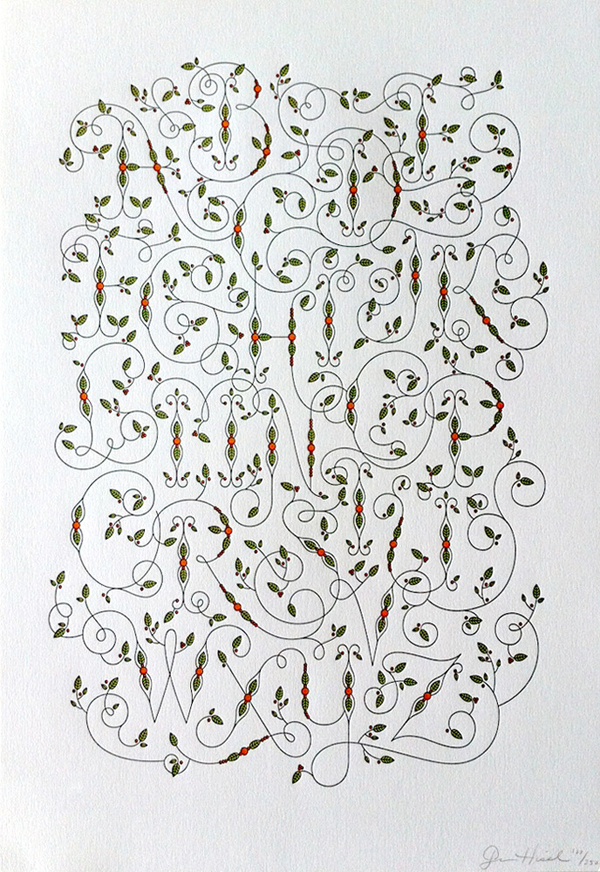 A B C D E
F G H I J K
L M N O P
Q R S T U V
W X Y Z